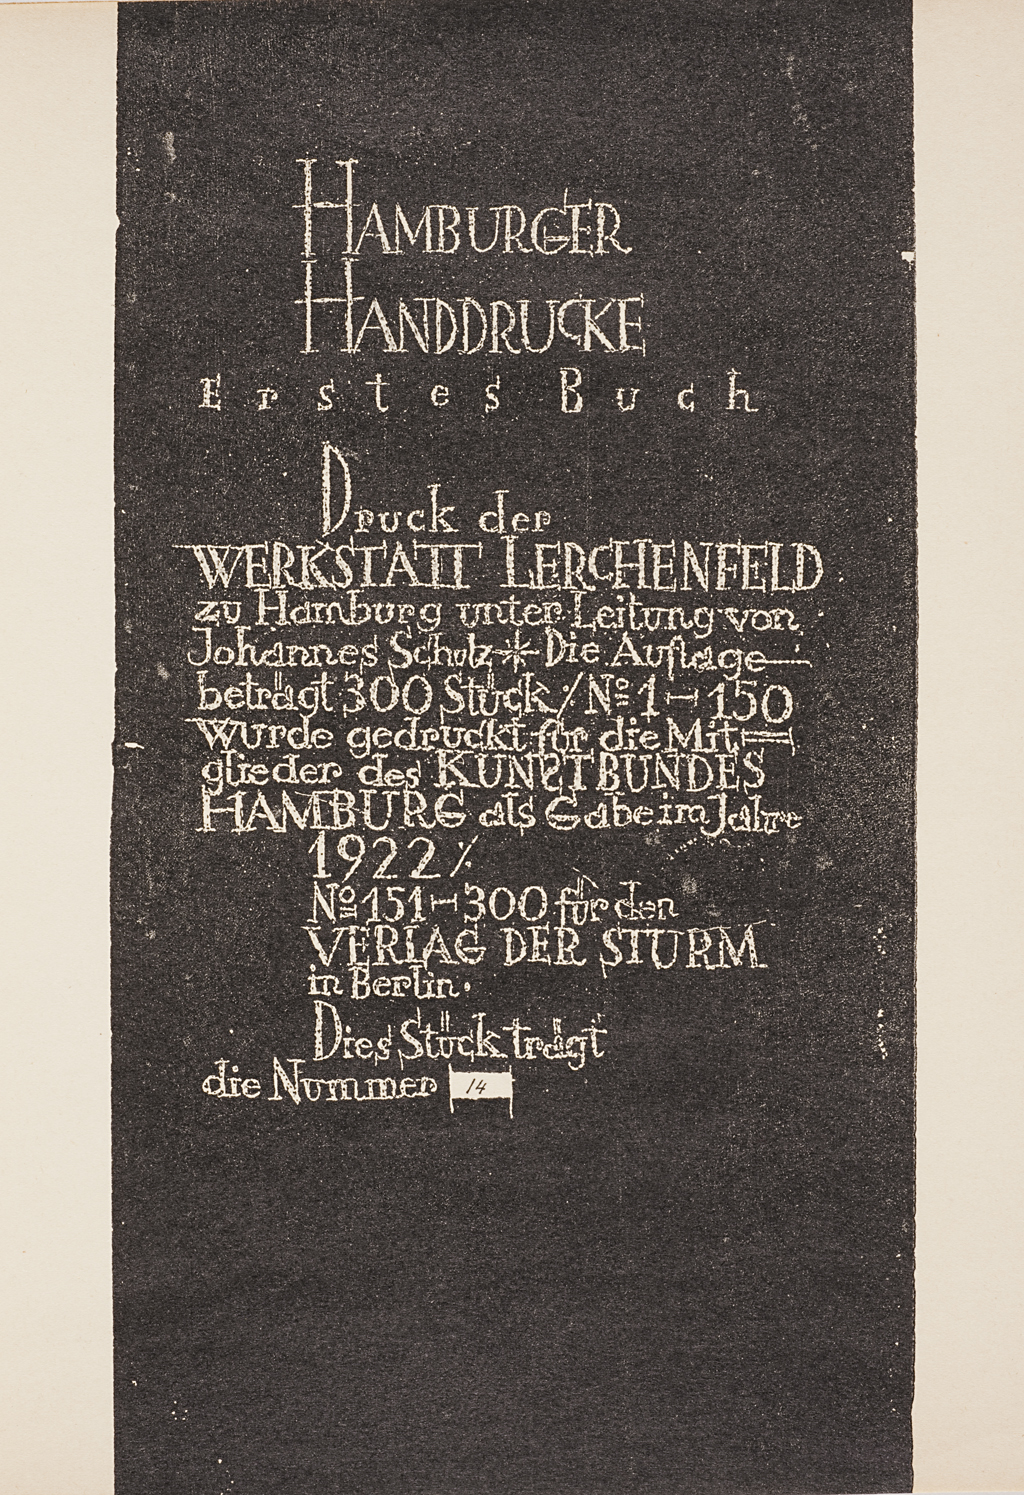 HAMBURGER
HANDDRUCKE
Erstes Buch
Druck der
WERKSTATT LERCHENFELD
zu Hamburg unter Leitung von
Johannes Schulz * Die Auflage
beträgt 300 Stück ⁒ No 1–150
wurde gedruckt für die Mit=
glieder des KUNSTBUNDES
HAMBURG als Gabe im Jahre
1922 ⁒
No 151–300 für den
VERLAG DER STURM
in Berlin.
Dies Stück trägt
die Nummer 14